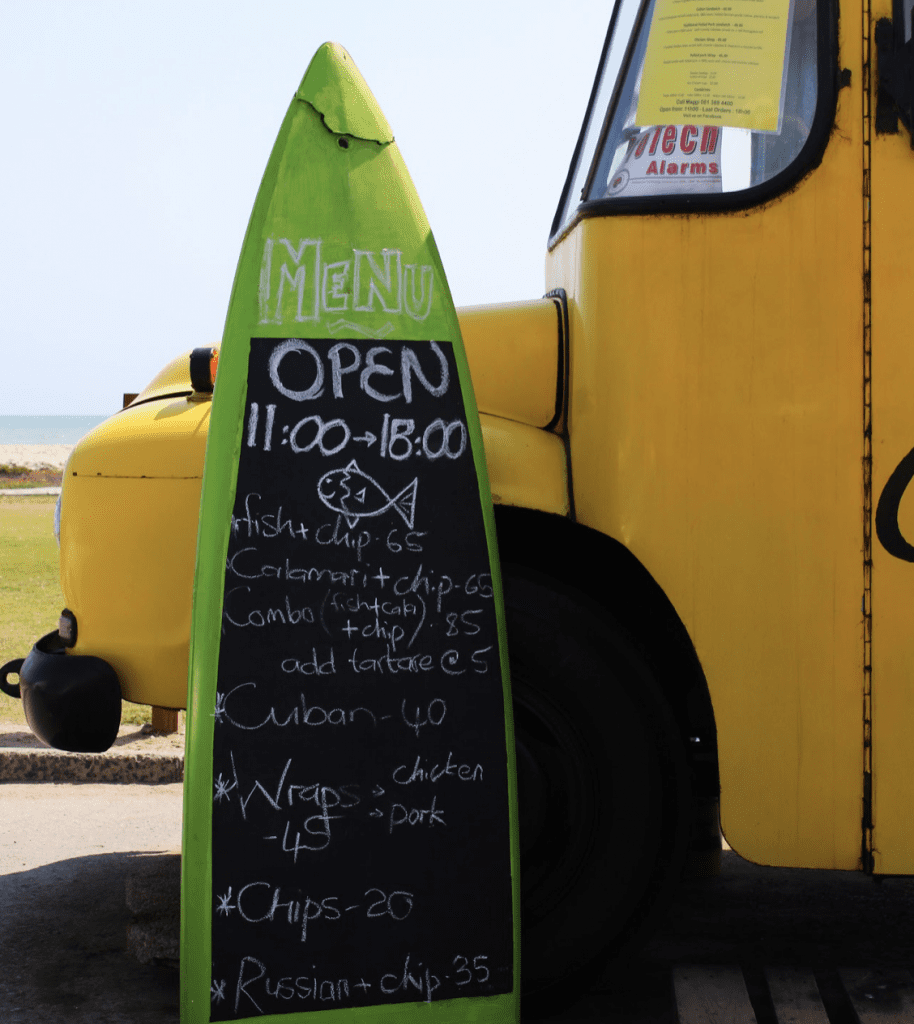 Call Maggi 081 399 4400
Open from: 11h00 - Last Orders: 18h00
Visit us on Facebook
Tech
Alarms
MENU
OPEN
11:00→18:00
fish + chip · 65
Calamari + chip - 65
Combo (fish + cala + chip) · 85
add tartare @ 5
*Cuban - 40
*Wraps → chicken
-45 → pork
*Chips - 20
*Russian + chip · 35